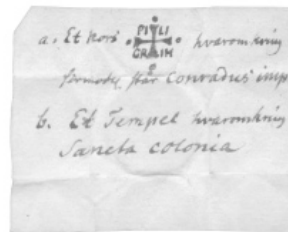 a. Et Kors PI LI hvaromkring
GR IM
står Conradus imp
b. Et Tempel hvaromkring
Sancta Colonia